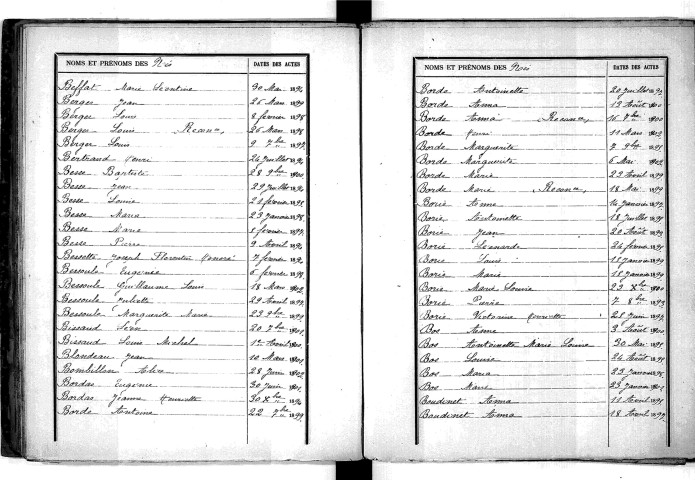 NOMS ET PRÉNOMS DES Nés DATES DES ACTES
Beffat Marie Léontine 30 Mai
Berger Jean 26 Mars
Berger Louis 8 février
Berger Louis Reconn. 26 Mars
Berger Louis 9 7bre
Bertrand Henri 24 juillet
Besse Baptiste 28 9bre
Besse Jean 29 juillet
Besse Louise 21 février
Besse Maria 23 janvier
Besse Marie 8 février
Besse Pierre 9 Avril
Bessette Joseph Florentin Honoré 7 février
Bessoule Eugénie 6 février
Bessoule Guillaume Louis 18 Mars
Bessoule Juliette 29 Avril
Bessoule Marguerite Marie 23 9bre
Bissaud Léon 20 7bre
Bissaud Louis Michel 1er Avril
Blondeau Jean 10 Mars
Bombillon Alice 28 Juin
Bordas Eugénie 30 Juin
Bordas Jeanne Henriette 30 Xbre
Borde Antoine 22 7bre
NOMS ET PRÉNOMS DES Nés DATES DES ACTES
Borde Antoinette 20 Juillet
Borde Anna 13 Août
Borde Anna Reconn. 16 7bre
Borde Henri 11 Mars
Borde Marguerite 7 9bre
Borde Marguerite 6 Mai
Borde Marie 23 Avril
Borde Marie Reconn. 18 Mai
Borie Anne 14 Janvier
Borie Antoinette 18 Juillet
Borie Jean 20 Août
Borie Léonarde 24 février
Borie Louis 18 janvier
Borie Marie 18 janvier
Borie Marie Louise 23 Xbre
Borie Pierre 7 8bre
Borie Victorine Henriette 26 Juin
Bos Anne 3 Août
Bos Antoinette Marie Louise 30 Mai
Bos Louise 24 Août
Bos Maria 23 Janvier
Bos Marie 23 Janvier
Boudinet Anna 11 Avril
Boudinet Anna 18 Avril